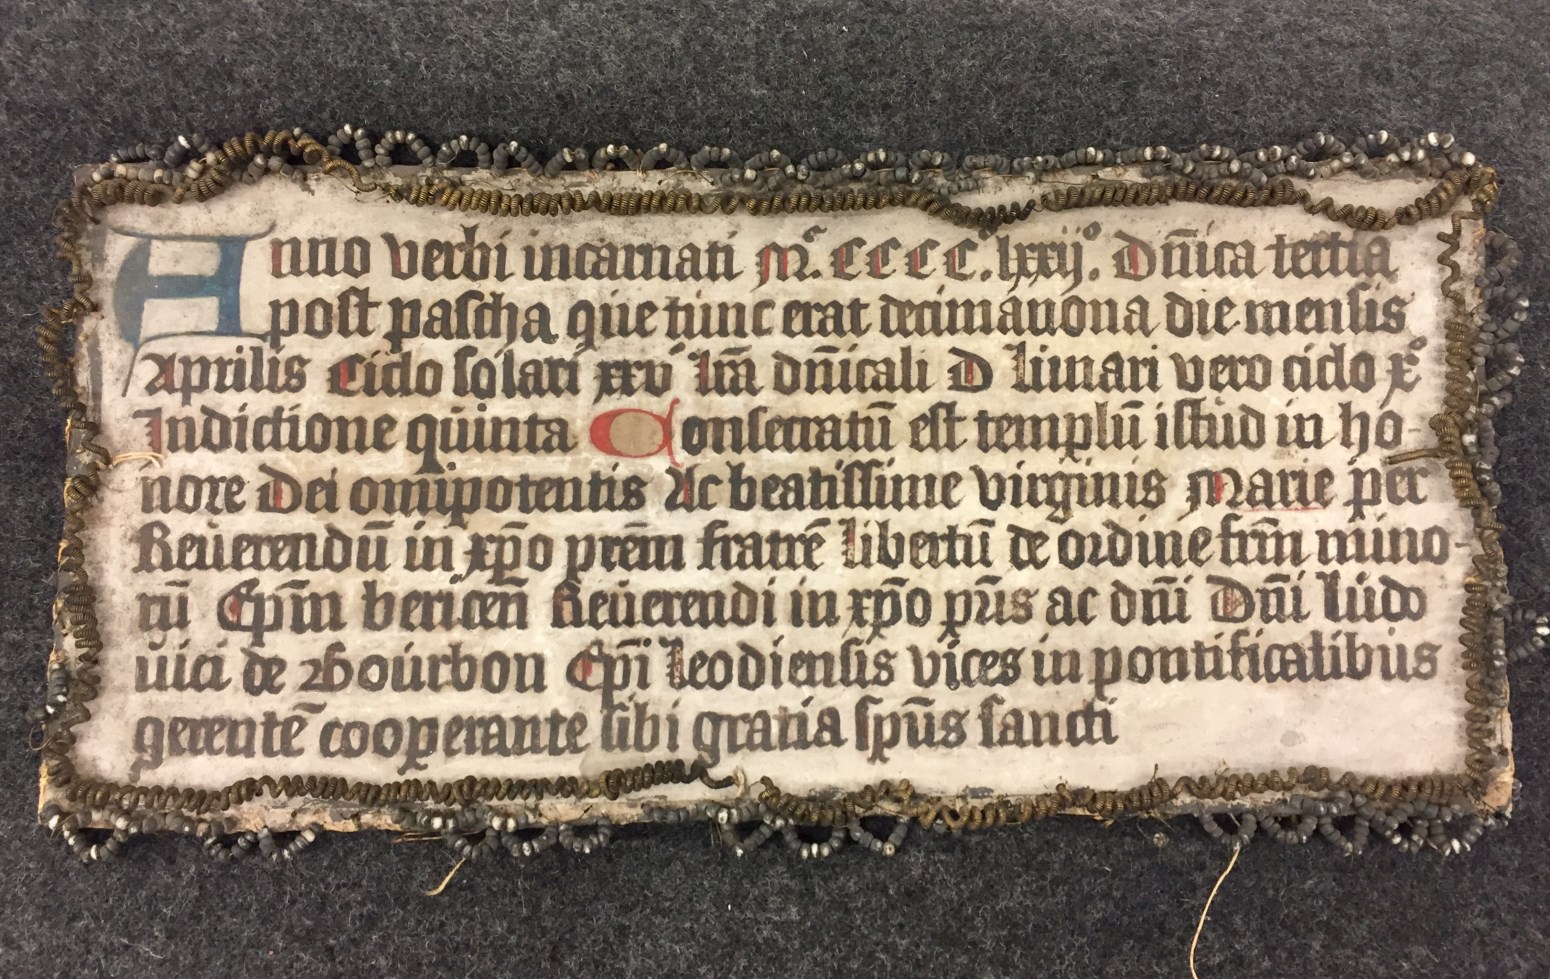 Anno verbi incarnati Mͨ. CCCC. lxxijº. Dn̄ica tertia
post pascha que tunc erat decimanona die mensis
Aprilis Ciclo solari xxv lr̄a dn̄icali D lunari vero ciclo xº
Indictione quinta Consecratū est templū istud in ho-
nore Dei omipotentis Ac beatissime virginis Marie per
Reuerendū in xp̄o prēm fratrē libertū de ordine frm̄ mino-
rū Ep̄m bericen̄ Reuerendi in xp̄o pr̄is ac dn̄i Dn̄i ludo
uici de Bourbon Ep̄i leodiensis vices in pontificalibus
gerentē cooperante sibi gratia sp̄us sancti